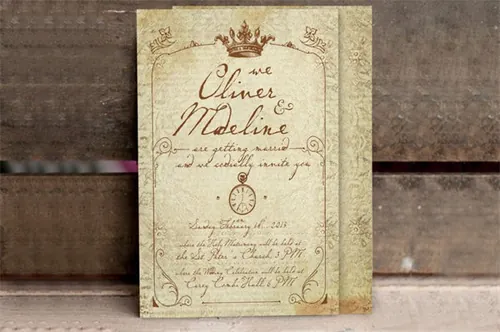 we
Oliver
&
Madeline
are getting married
and we cordially invite you
on
Sunday, February 16, 2013
where the Holy Matrimony will be held at
the Lot Peter's Church 3 PM
where the Wedding Celebration will be held at
Carry Combe Hall 6 PM